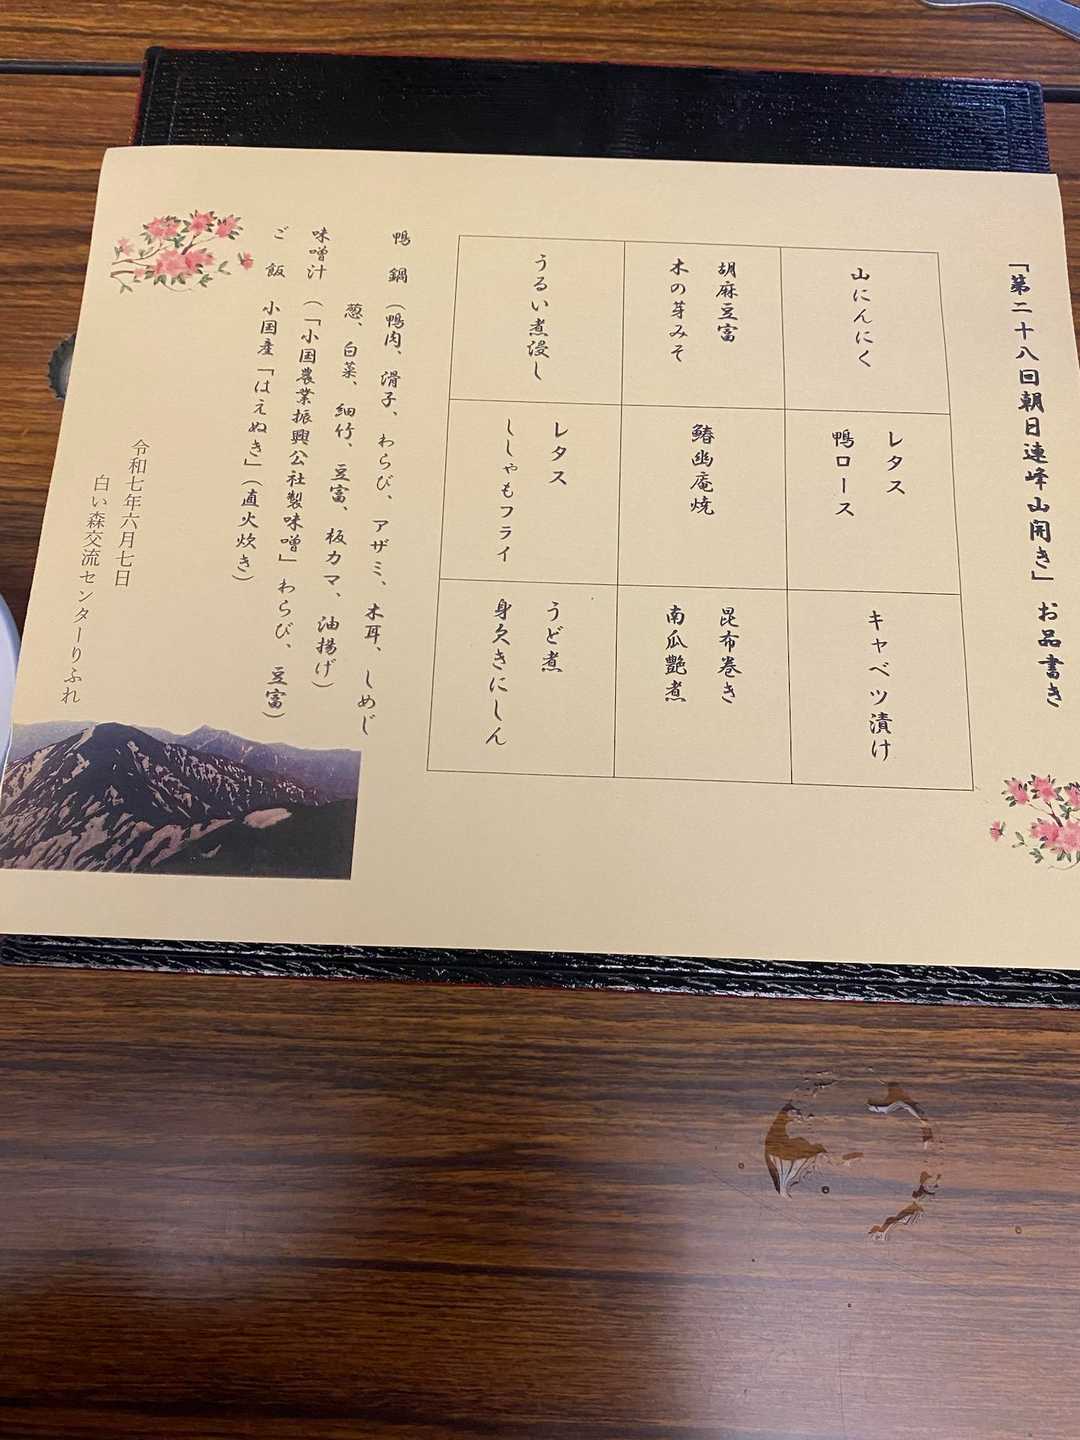 「第二十八回朝日連峰山開き」 お品書き
山にんにく
レタス
鴨ロース
キャベツ漬け
胡麻豆富
木の芽みそ
鰆幽庵焼
昆布巻き
南瓜艶煮
うるい煮浸し
レタス
ししゃもフライ
うど煮
身欠きにしん
鴨 鍋 (鴨肉、滑子、わらび、アザミ、木耳、しめじ
葱、白菜、細竹、豆富、板カマ、油揚げ)
味噌汁 (「小国農業振興公社製味噌」わらび、豆富)
ご 飯 小国産「はえぬき」(直火炊き)
令和七年六月七日
白い森交流センターりふれ